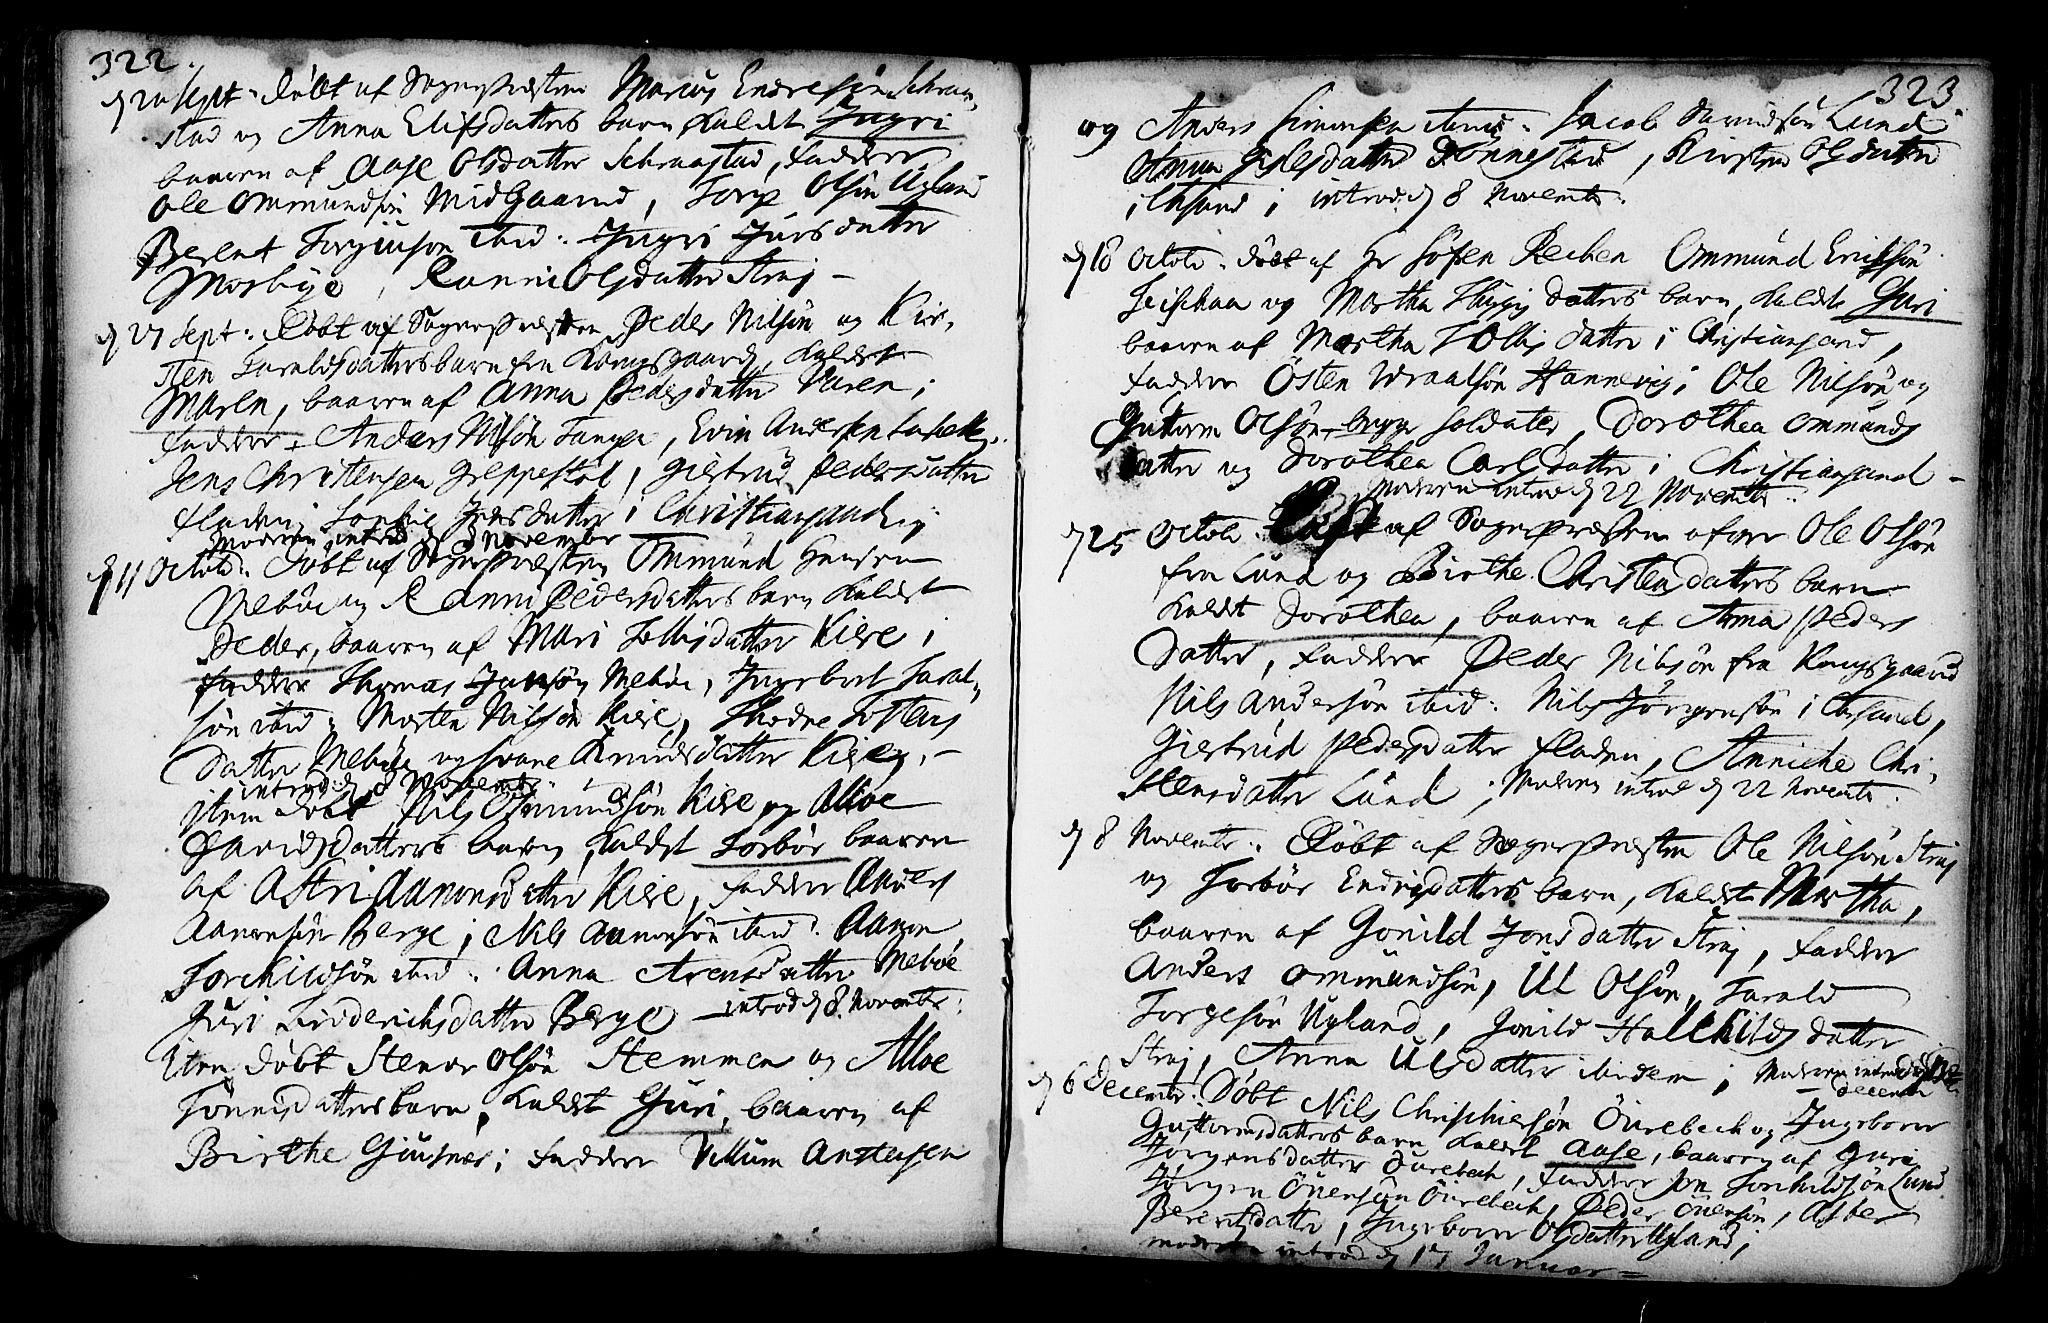 322.
d 20 Sept. Døbt af Sognepræsten Marcus Endresøn Schraa-
stad og Anna Elifsdatters barn kaldet Ingri
baaren af Aase Olsdatter Schraastad, Faddere
Ole Ommundsøn Midgaard, Torge Olsøn Ugland
Berent Torginson ibid: Ingri Jursdatter
Mosbye, Ranni Olsdatter Straj –
d 27 Sept: Døbt af Sognepræsten Peder Nilsøn og Kir-
sten Taraldsdatters barn fra Kongsgaard, kaldet
Maren, baaren af Anna Pedersdatter
Faddere Anders Nilsøn Tangen, Even Andersen
Jens Christensen Greppestøl, Giertrud Pedersdatter
Fladen, Sophie Jensdatter i Christiansand
Moderen introd d 8 November
d 11 Octobr. Døbt af Sognepræsten Ommund Hansen
Mebøe og Ranni Pedersdatters barn kaldet
Peder, baaren af Mari Tollisdatter Kiere i
Faddere Thomas Jansøn Mebøe, Ingebort Taral-
søn ibid: Morten Nilsøn Kiere, Thodne Tostens
datter Mebøe og Svane Knudsdatter Kiere, –
introd. d. 8 Novembr
item Døbt Nils Osmundsøn Kiere og Alloe
Davidsdatters barn kaldet Torbor baaren
af Astri Aanonsdatter Kiere, Faddere Anders
Aanonsøn Berge, Nils Aanonsøn ibid. Aanon
Torchildsøn ibid. Anna Arensdatter Mebøe
Guri Friderichsdatter Berge – introd d 8. Novembr:
Item Døbt Stenar Olsøn Stemmen og Alloe
Tønnisdatters barn, kaldet Guri, baaren af
Birthe; Faddere Villum Anstensen
323.
og Anders Simonsen ibid. Jacob Davidsøn Lund
Gislesdatter Dønnestad, Kirsten Olsdatter
i Chsand; introd. d 8 Novembr.
d 18 Octobr. Døbt af Hr Søfen Ommund Erichsøn
og Martha datters barn, kaldet Guri
baaren af Martha Tollisdatter i Christiansand,
Faddere Østen Wraalsøn Hannevig; Ole Nilsøn og
Gutorm Olsøn, begge Soldater, Dorothea Ommunds
datter og Dorothea Carlsdatter i Christiansand –
Moderen introd d 22 Novembr.
d 25 Octobr. Døbt af Sognepræsten Ole Olsøn
fra Lund og Birthe Christensdatters barn
kaldet Dorothea, baaren af Anna Peders
datter, Faddere Peder Nilssøn fra Kongsgaard
Nils Andersøn ibid: Nils Jørgensøn i Chrsand,
Giertrud Pedersdatter Fladen, Anniche Chri-
stensdatter Lund; Moderen introd d 22 Novembr.
d 8 Novembr. Døbt af Sognepræsten Ole Nilsøn Straj
og Torbor Endresdatters barn, kaldet Martha,
baaren af Gonild Jonsdatter Straj, Faddere
Anders Ommundsøn, Ul Olsøn, Tarald
Torgesøn Ugland, Gonild Hallkilds datter
Straj, Anna Ulsdatter ibidem; Moderen introd
decembr
d 6 Decembr. Døbt Nils Christensøn Øurebech og Ingeborre
Guttormsdatters barn kaldet Aase, baaren af Guri
Jørgensdatter Øurebech, Faddere Jon Torkildsøn Lund
Jørgen Øuensøn Øurebech, Peder Øuensøn, Asber
Berentsdatter, Ingeborre Olsdatter Ugland;
moderen introd d 17 Januar =